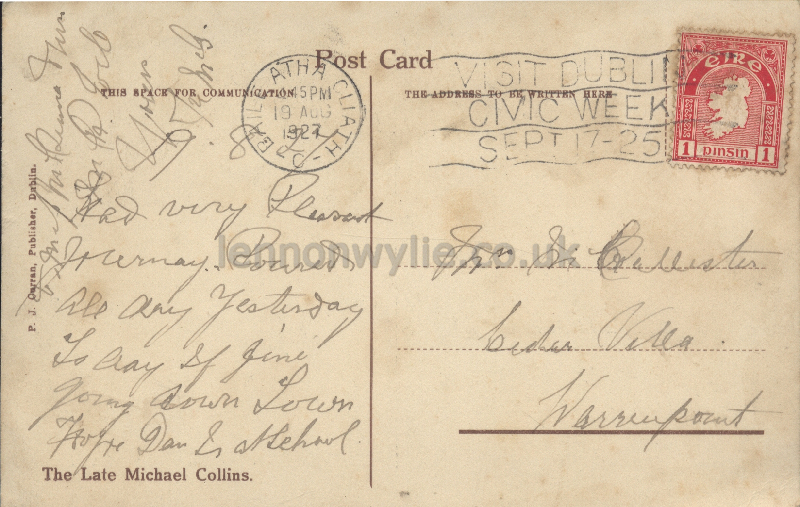 Post Card
THIS SPACE FOR COMMUNICATION.
THE ADDRESS TO BE WRITTEN HERE
BAILE ATHA CLIATH
45PM
19 AUG
1927
VISIT DUBLIN
CIVIC WEEK
SEPT 17-25
éire
1 pinsin 1
Had very Pleasant
Journay. Poured
all day Yesterday
To day is fine
going down Town
Hope Dan is at School
Yours
Mrs McCallister
Cedar Villa
Warrenpoint
P. J. Curran, Publisher, Dublin.
The Late Michael Collins.
lennonwylie.co.uk